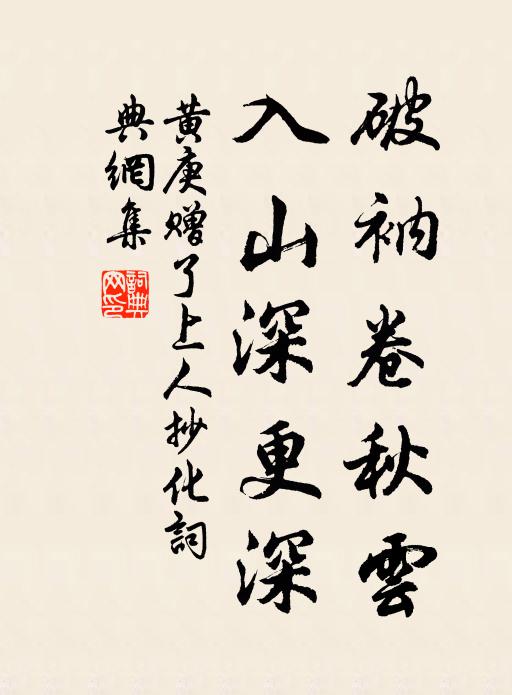 破衲卷秋雲
入山深更深
黄庚赠了上人抄化詞
典網集
詞典
网印